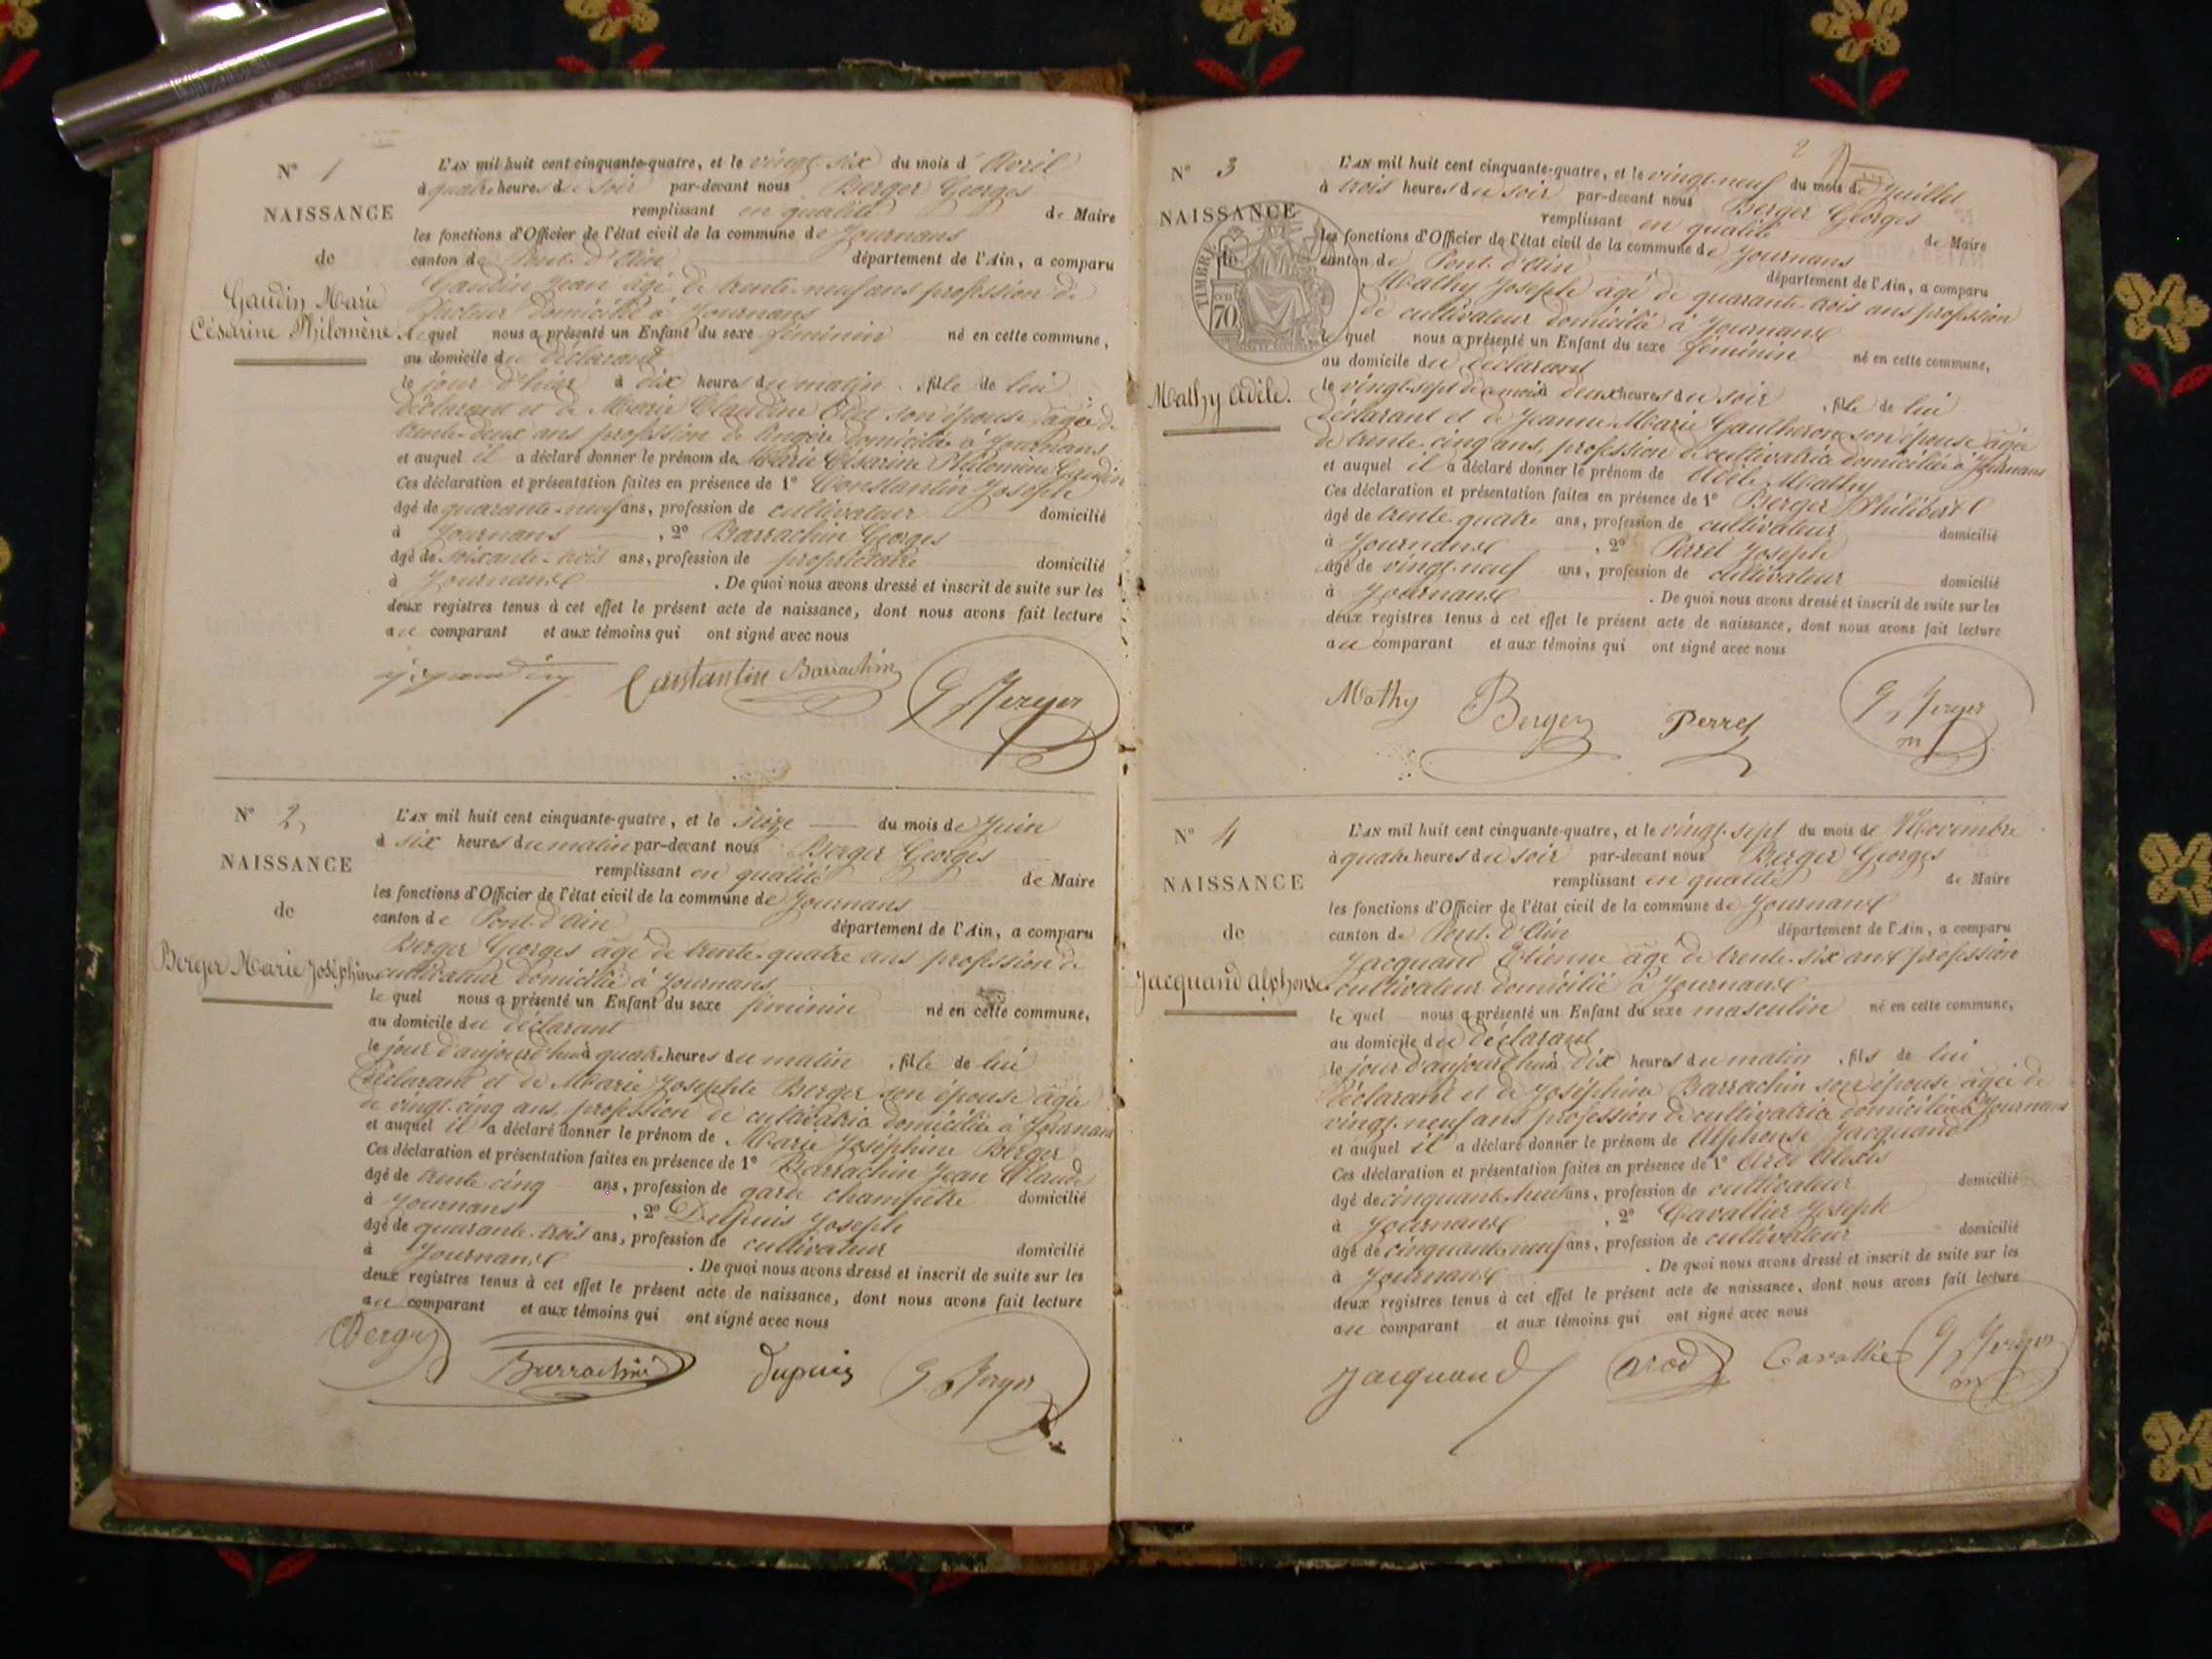 N° 1
NAISSANCE
de
Gaudin Marie
Césarine Philomène
L'AN mil huit cent cinquante-quatre, et le vingt-six du mois d'Avril
à quatre heures du soir par-devant nous Berger Georges
remplissant en qualité de Maire
les fonctions d'Officier de l'état civil de la commune de Journans
canton de Pont-d'Ain département de l'Ain, a comparu
Gaudin Jean âgé de trente-neuf ans profession de
facteur domicilié à Journans
lequel nous a présenté un Enfant du sexe féminin né en cette commune,
au domicile du déclarant
le jour d'hier à dix heures du matin, fille de lui
déclarant et de Marie Claudine son épouse âgée de
trente-deux ans profession de lingère domiciliée à Journans
et auquel il a déclaré donner le prénom de Marie Césarine Philomène Gaudin
Ces déclaration et présentation faites en présence de 1° Constantin Joseph
âgé de quarante-neuf ans, profession de cultivateur domicilié
à Journans, 2° Barrachin Georges
âgé de soixante-trois ans, profession de propriétaire domicilié
à Journans. De quoi nous avons dressé et inscrit de suite sur les
deux registres tenus à cet effet le présent acte de naissance, dont nous avons fait lecture
au comparant et aux témoins qui ont signé avec nous
Constantin Barrachin G Berger
N° 2
NAISSANCE
de
Berger Marie Joséphine
L'AN mil huit cent cinquante-quatre, et le seize du mois de Juin
à six heures du matin par-devant nous Berger Georges
remplissant en qualité de Maire
les fonctions d'Officier de l'état civil de la commune de Journans
canton de Pont-d'Ain département de l'Ain, a comparu
Berger Georges âgé de trente-quatre ans profession de
cultivateur domicilié à Journans
lequel nous a présenté un Enfant du sexe féminin né en cette commune,
au domicile du déclarant
le jour d'aujourd'hui à quatre heures du matin, fille de lui
déclarant et de Marie Josephte Berger son épouse âgée
de vingt-cinq ans, profession de cultivatrice domiciliée à Journans
et auquel il a déclaré donner le prénom de Marie Joséphine Berger
Ces déclaration et présentation faites en présence de 1° Barrachin Jean Claude
âgé de trente cinq ans, profession de garde champêtre domicilié
à Journans, 2° Dupuis Joseph
âgé de quarante-trois ans, profession de cultivateur domicilié
à Journans. De quoi nous avons dressé et inscrit de suite sur les
deux registres tenus à cet effet le présent acte de naissance, dont nous avons fait lecture
au comparant et aux témoins qui ont signé avec nous
Berger Barrachin Dupuis G Berger
2
N° 3
NAISSANCE
de
TIMBRE
70
Mathy Adèle.
L'AN mil huit cent cinquante-quatre, et le vingt-neuf du mois de Juillet
à trois heures du soir par-devant nous Berger Georges
remplissant en qualité de Maire
les fonctions d'Officier de l'état civil de la commune de Journans
canton de Pont-d'Ain département de l'Ain, a comparu
Mathy Joseph âgé de quarante-trois ans profession
de cultivateur domicilié à Journans
lequel nous a présenté un Enfant du sexe féminin né en cette commune,
au domicile du déclarant
le vingt-sept de ce mois à deux heures du soir, fille de lui
déclarant et de Jeanne Marie Gautheron son épouse âgée
de trente-cinq ans, profession de cultivatrice domiciliée à Journans
et auquel il a déclaré donner le prénom de Adèle Mathy
Ces déclaration et présentation faites en présence de 1° Berger Philibert
âgé de trente-quatre ans, profession de cultivateur domicilié
à Journans, 2° Perret Joseph
âgé de vingt-neuf ans, profession de cultivateur domicilié
à Journans. De quoi nous avons dressé et inscrit de suite sur les
deux registres tenus à cet effet le présent acte de naissance, dont nous avons fait lecture
au comparant et aux témoins qui ont signé avec nous
Mathy Berger Perret G Berger
m
N° 4
NAISSANCE
de
Jacquand Alphonse
L'AN mil huit cent cinquante-quatre, et le vingt-sept du mois de Novembre
à quatre heures du soir par-devant nous Berger Georges
remplissant en qualité de Maire
les fonctions d'Officier de l'état civil de la commune de Journans
canton de Pont-d'Ain département de l'Ain, a comparu
Jacquand Etienne âgé de trente-six ans profession
cultivateur domicilié à Journans
lequel nous a présenté un Enfant du sexe masculin né en cette commune,
au domicile du déclarant
le jour d'aujourd'hui à dix heures du matin, fils de lui
déclarant et de Joséphine Barrachin son épouse âgée de
vingt-neuf ans profession de cultivatrice domiciliée à Journans
et auquel il a déclaré donner le prénom de Alphonse Jacquand
Ces déclaration et présentation faites en présence de 1° Arod Alexis
âgé de cinquante-huit ans, profession de cultivateur domicilié
à Journans, 2° Cavallier Joseph
âgé de cinquante-neuf ans, profession de cultivateur domicilié
à Journans. De quoi nous avons dressé et inscrit de suite sur les
deux registres tenus à cet effet le présent acte de naissance, dont nous avons fait lecture
au comparant et aux témoins qui ont signé avec nous
Jacquand Arod Cavallier G Berger
m